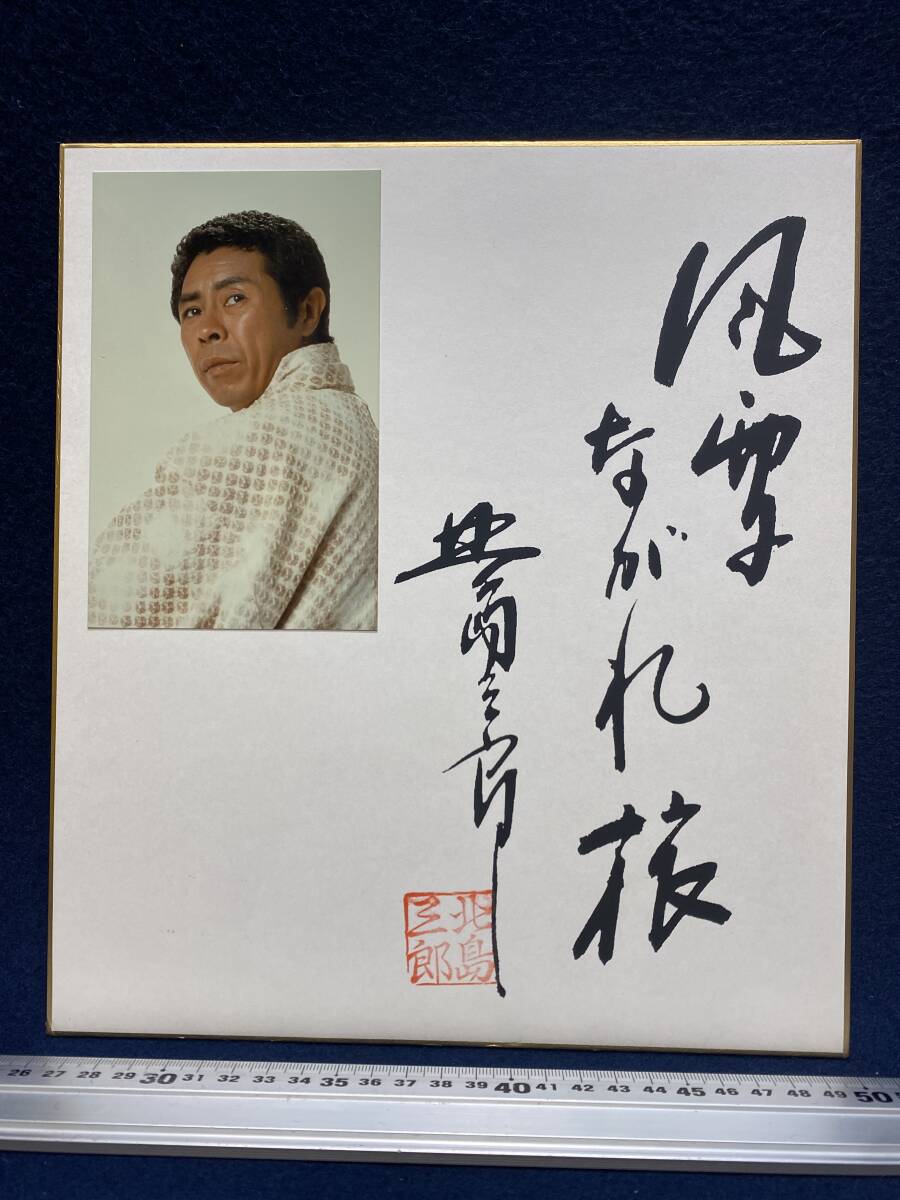 風雪
ながれ旅
北島三郎
北島
三郎
26 27 28 29 30 31 32 33 34 35 36 37 38 39 40 41 42 43 44 45 46 47 48 49 50